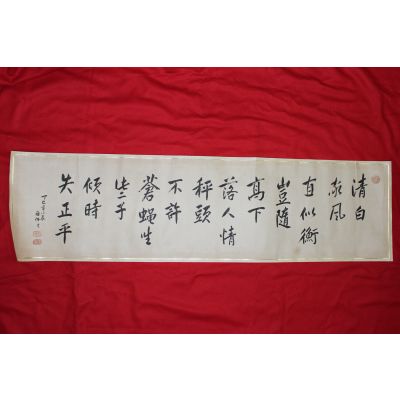 清白
家風
直似衡
豈隨
高下
落人情
秤頭
不許
蒼蠅坐
些子
傾時
失正平
丁巳